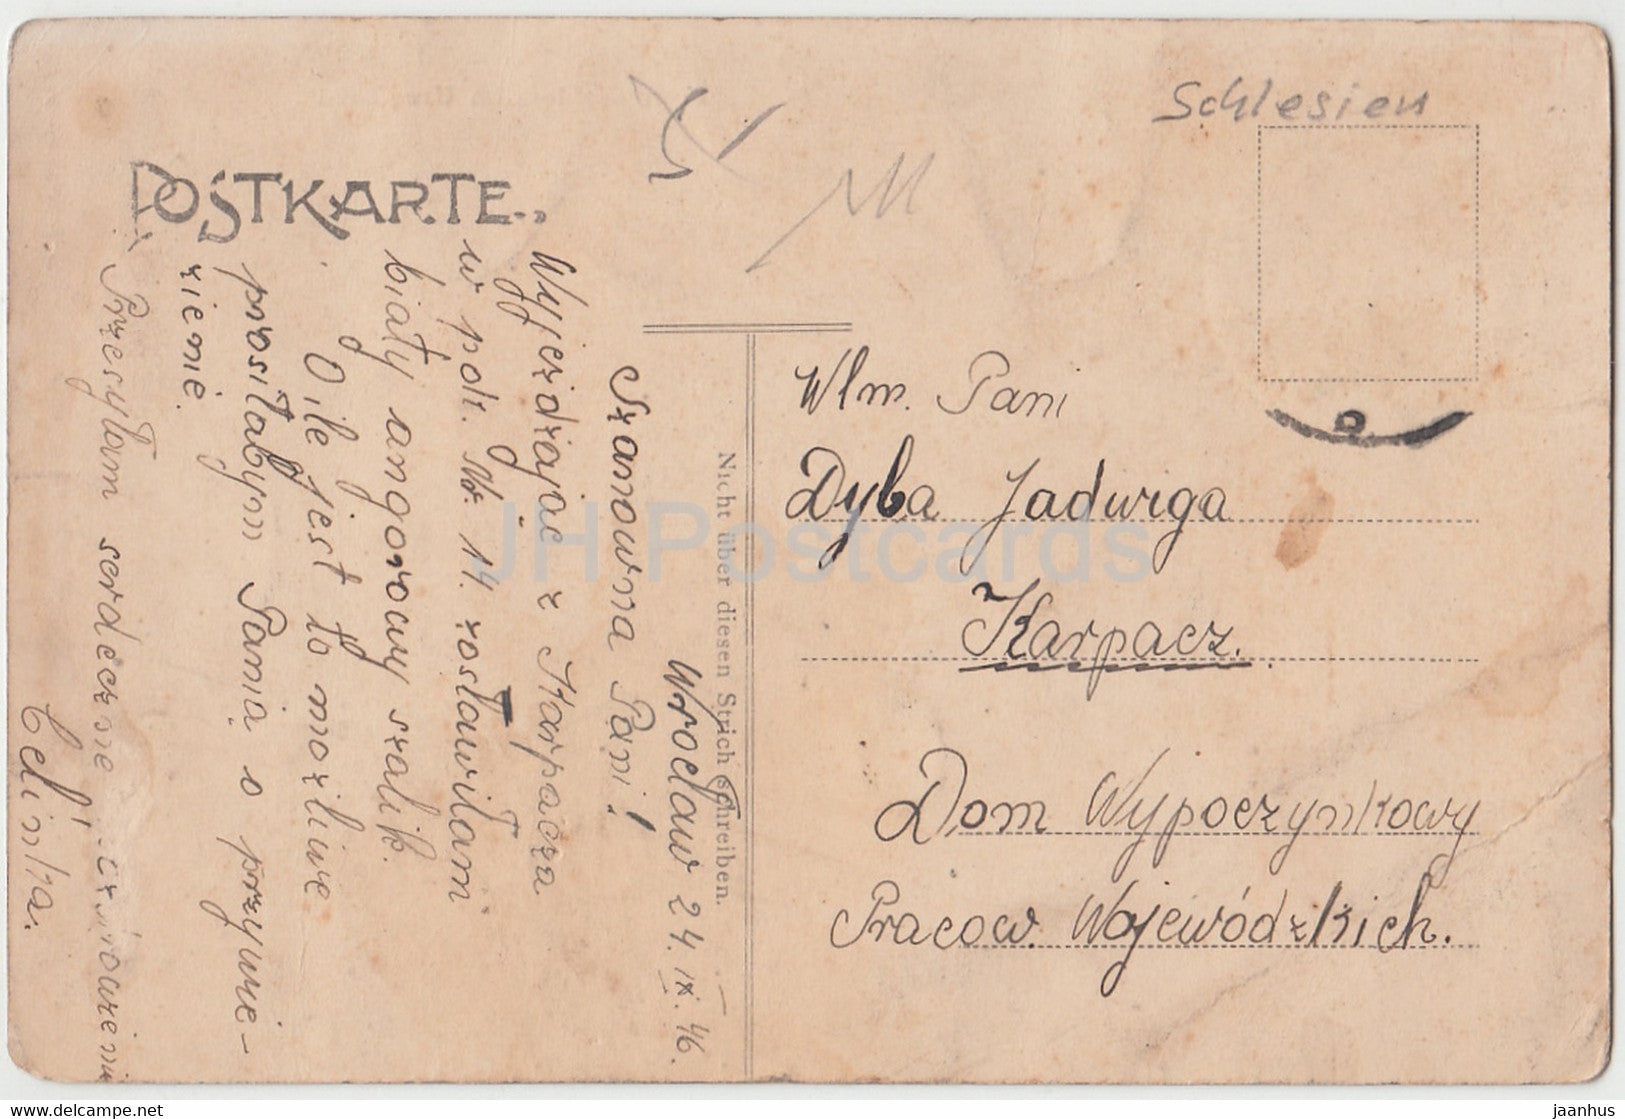 Schlesien
POSTKARTE
Wrocław 24.IX.46.
Szanowna Pani!
Wyjeżdżając z Karpacza
w pok. Nr. 14. zostawiłam
biały angorowy szalik.
O ile jest to możliwe
prosiłabym Panią o przywie-
zienie.
Przesyłam serdeczne
Celinka.
Nicht über diesen Strich schreiben.
Wlm. Pani
Dyba Jadwiga
Karpacz.
Dom Wypoczynkowy
Pracow. Wojewódzkich.
JH Postcards
www.delcampe.net
jaanhus